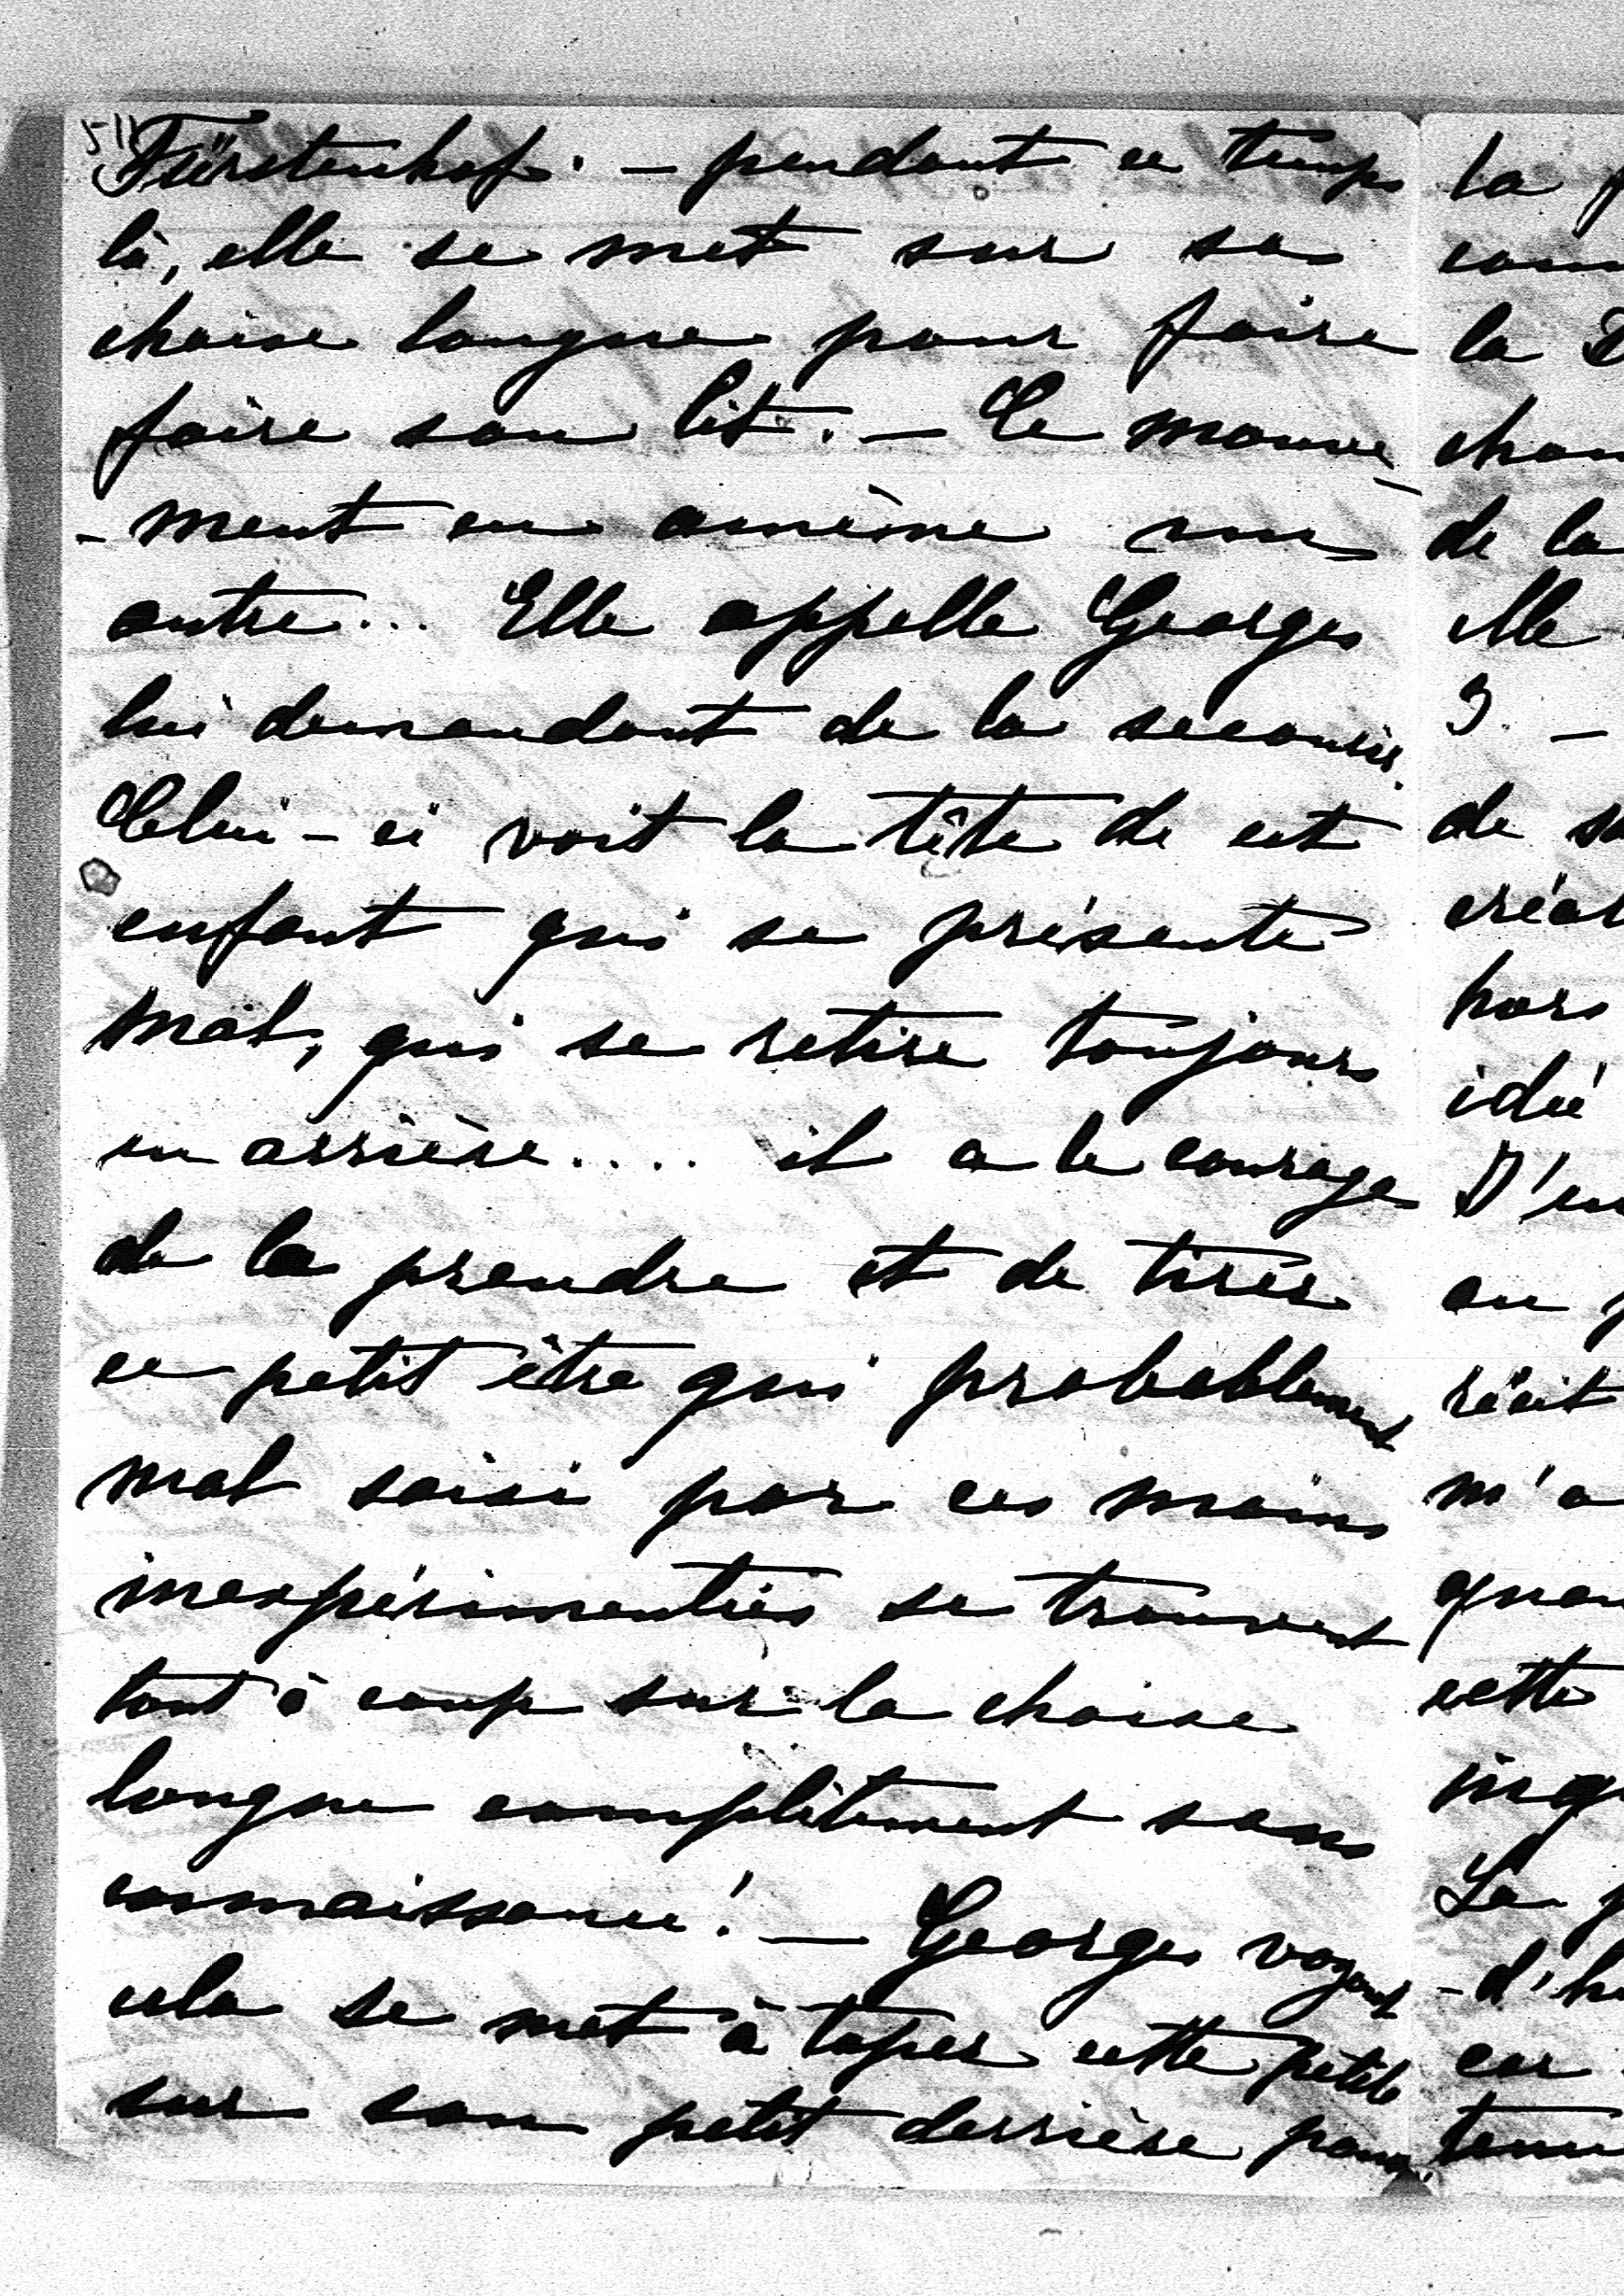 511
Fürstenhof. — pendant ce temps
là, elle se met sur sa
chaise longue pour faire
faire son lit. — Ce mouve
- ment en amène un
autre... Elle appelle Georges
lui demandant de la secourir.
Celui-ci voit la tête de cet
enfant qui se présente
mal, qui se retire toujours
en arrière.... il a le courage
de la prendre et de tirer
ce petit être qui probablement
mal saisi par ces mains
inexpérimentées se trouvent
tout à coup sur la chaise
longue complètement sans
connaissance! — Georges voyant
cela se met à taper cette petite
sur son petit derrière pour
la
com
la
chan
de la
elle
9. —
de sa
créat
hors
idée
D'en
au
récit
m'a
quan
cette
inq
La
- d'h
car
tenu